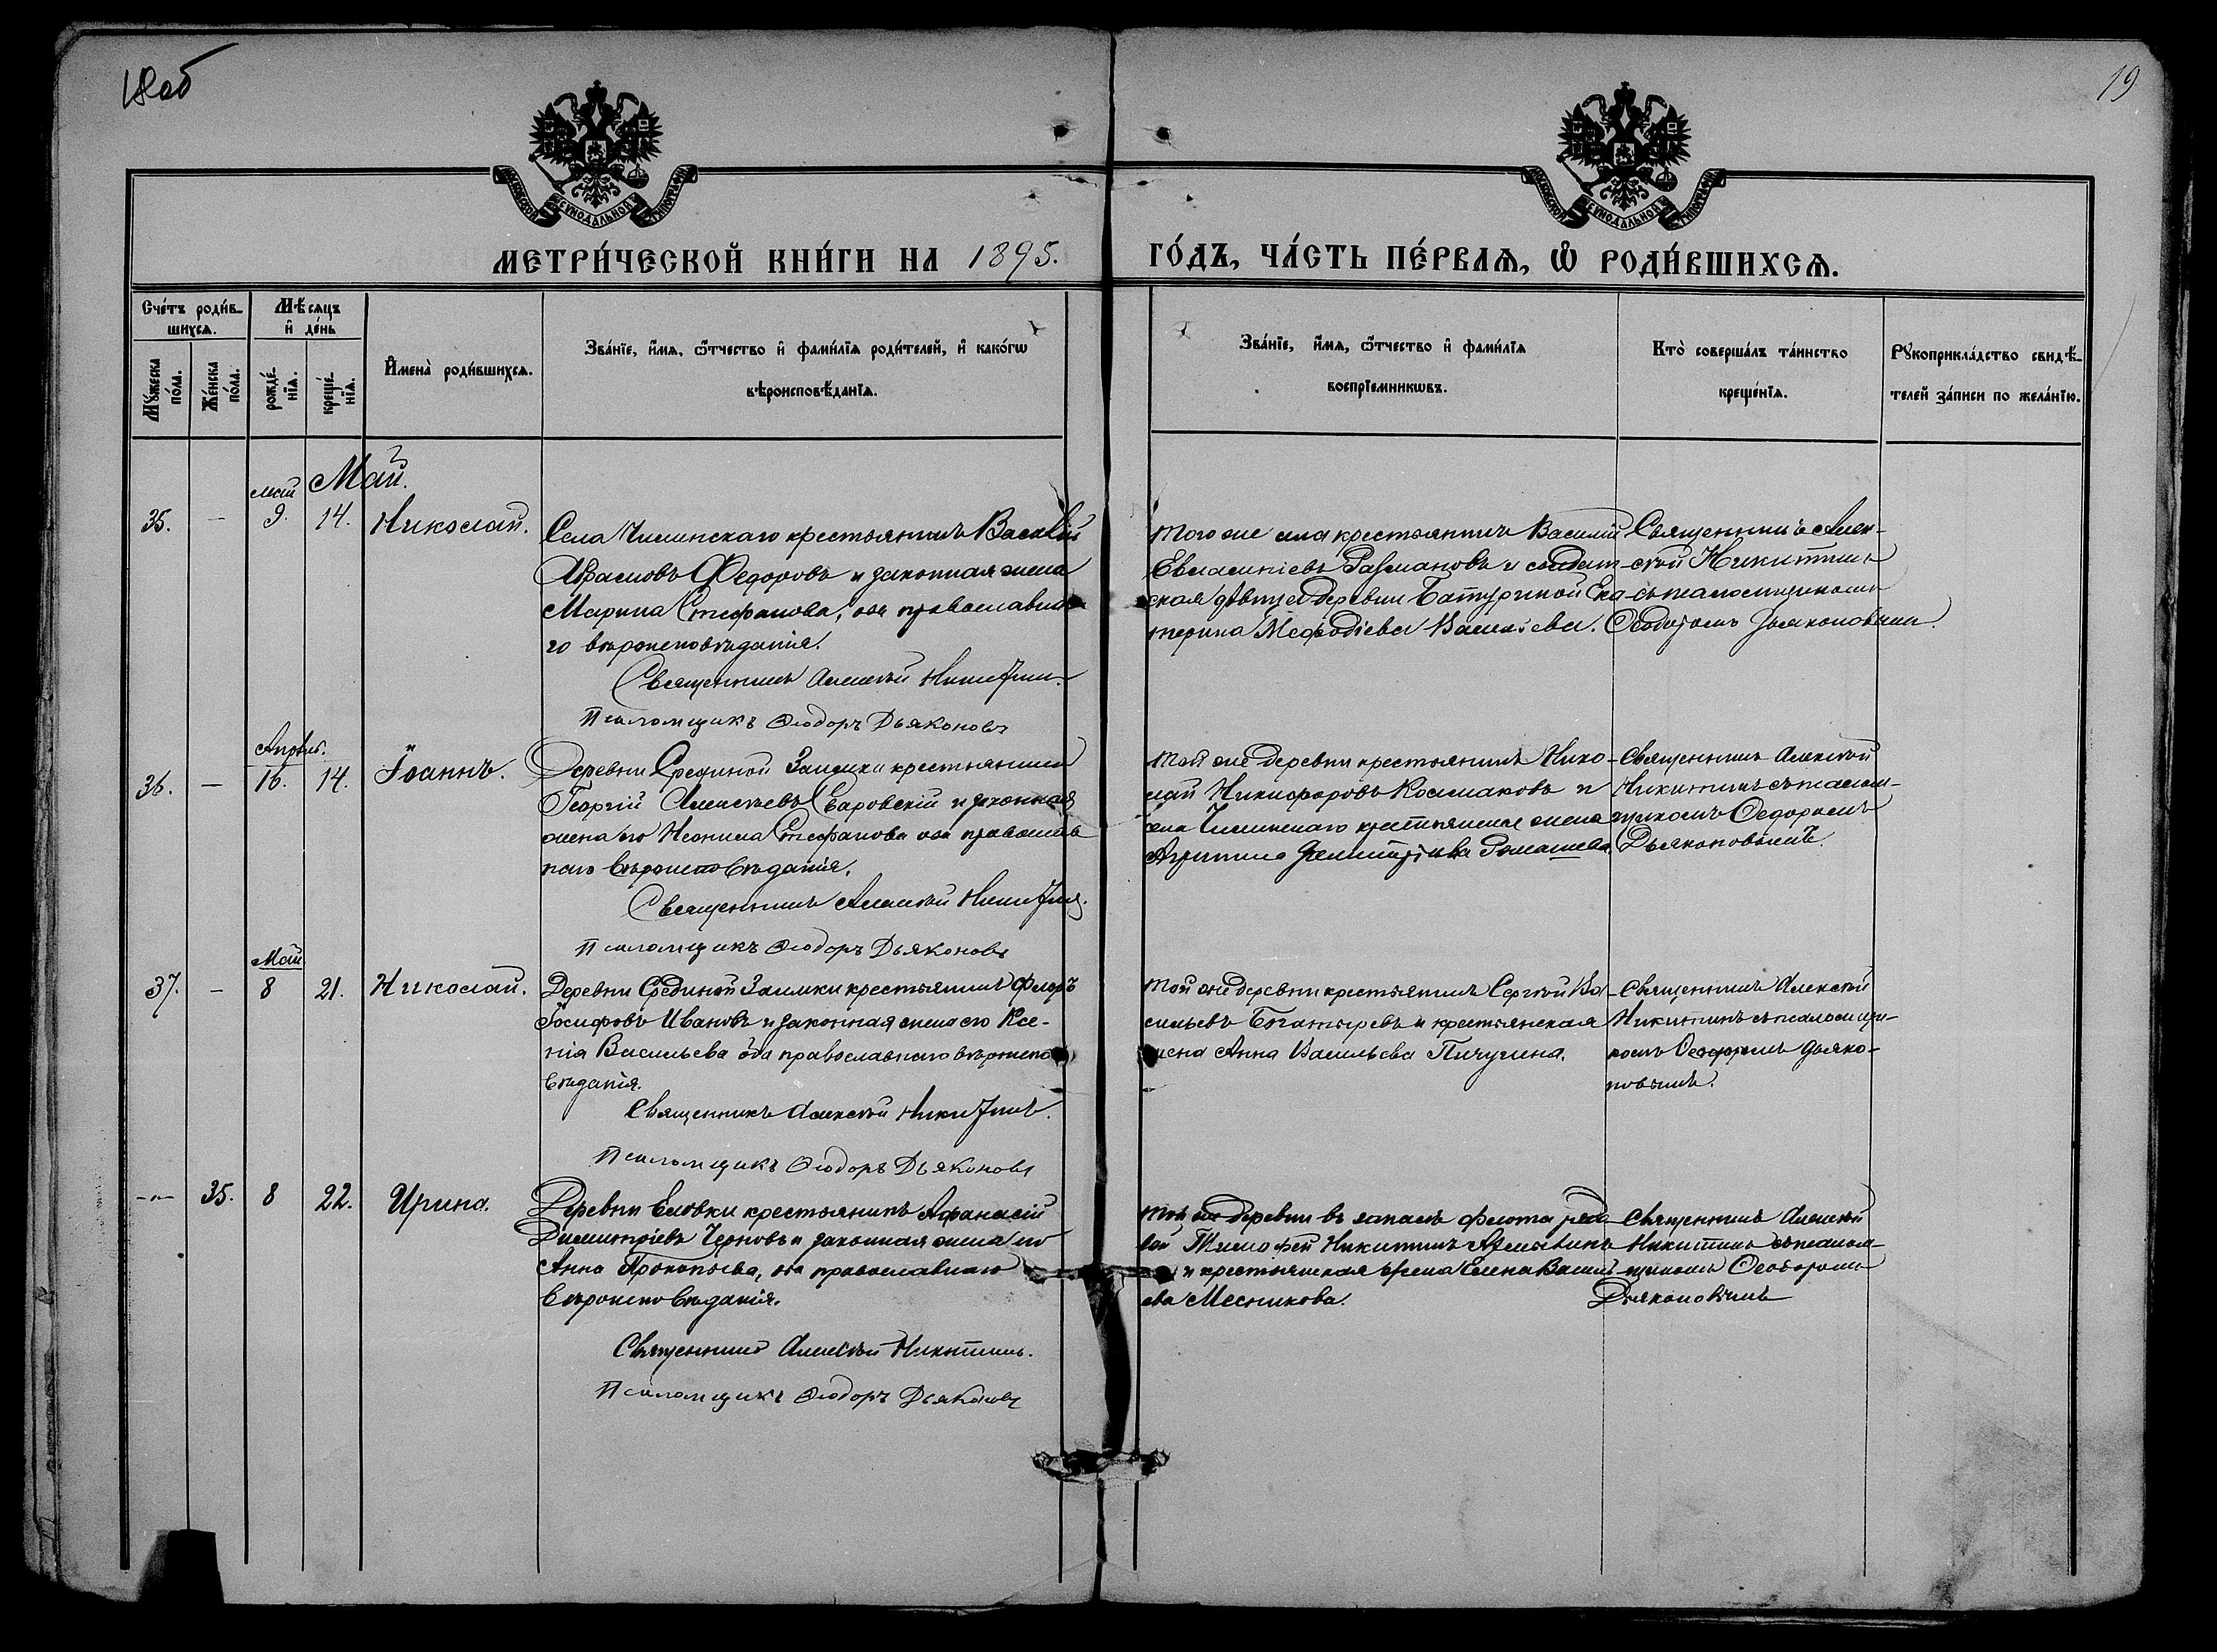 18 об
19
МОСКОВСКОЙ СѴНОДАЛЬНОЙ ТИПОГРАФІИ
МОСКОВСКОЙ СѴНОДАЛЬНОЙ ТИПОГРАФІИ
МЕТРИ́ЧЕСКОЙ КНИ́ГИ НА 1895.
ГО́ДЪ, ЧА́СТЬ ПЕ́РВАѦ, Ѡ РОДИ́ВШИХСѦ.
Сче́тъ роди́в-
шихсѧ.
Мꙋ́жеска по́ла.
Же́нска по́ла.
Мѣ́сѧцъ
и҆ де́нь
рожде́-
нїѧ.
креще́-
нїѧ.
И҆мена̀ роди́вшихсѧ.
Зва́нїе, и҆́мѧ, ѻ҆́тчество и҆ фами́лїѧ роди́телей, и҆ како́гѡ
вѣроисповѣ́данїѧ.
Зва́нїе, и҆́мѧ, ѻ҆́тчество и҆ фами́лїѧ
воспрїе́мникѡвъ.
Кто̀ соверша́лъ та́инство
креще́нїѧ.
Рꙋкоприкла́дство свидѣ́-
телей за́писи по жела́нїю.
Май.
май
35. — 9. 14. Николай.
Села Чиминскаго крестьянинъ Василій
Абрамовъ Федоровъ и законная жена
Марина Стефанова, оба православна
го вѣроисповѣданія.
Священникъ Алексѣй Никитинъ
Псаломщикъ Ѳеодоръ Дьяконовъ
того же села крестьянинъ Василій
Евлампіевъ и солдат-
ская дѣвица деревни Батуриной Ека-
терина Меѳодіева
Священникъ Алек-
сѣй Никитинъ
съ псаломщикомъ
Ѳеодоромъ Дьяконовым
Апрѣль.
36. — 16. 14. Іоаннъ.
Деревни Срединой Заимки крестьянинъ
Георгій Алексѣевъ и законная
жена его Неонила Стефанова оба православ
наго вѣроисповѣданія.
Священникъ Алексѣй Никитинъ.
Псаломщикъ Ѳеодоръ Дьяконовъ
той же деревни крестьянинъ Нико-
лай Никифоровъ Колмаковъ и
села Чиминскаго крестьянская жена
Агрипина Димитріева Ромашева
Священникъ Алексѣй
Никитинъ съ псалом-
щикомъ Ѳеодоромъ
Дьяконовымъ.
Май
37. — 8 21. Николай.
Деревни Срединой Заимки крестьянинъ Флоръ
Іосифовъ Ивановъ и законная жена его Ксе-
нія Васильева оба православнаго вѣроиспо
вѣданія.
Священникъ Алексѣй Никитинъ.
Псаломщикъ Ѳеодоръ Дьяконовъ
той же деревни крестьянинъ Сергѣй Ва-
сильевъ Богатыревъ и крестьянская
жена Анна Васильева Пичугина.
Священникъ Алексѣй
Никитинъ съ псаломщи-
комъ Ѳеодоромъ Дьяко-
новымъ.
-"- 35. 8 22. Ирина.
Деревни Еловки крестьянинъ Аѳанасій
Димитріевъ Черновъ и законная жена его
Анна Прокопьева, оба православнаго
вѣроисповѣданія.
Священникъ Алексѣй Никитинъ.
Псаломщикъ Ѳеодоръ Дьяконовъ
той же деревни въ запасѣ флота рядо
вой Тимоѳей Никитинъ
и крестьянская жена Елена Василь
ева Месникова.
Священникъ Алексѣй
Никитинъ съ псалом-
щикомъ Ѳеодоромъ
Дьяконовымъ